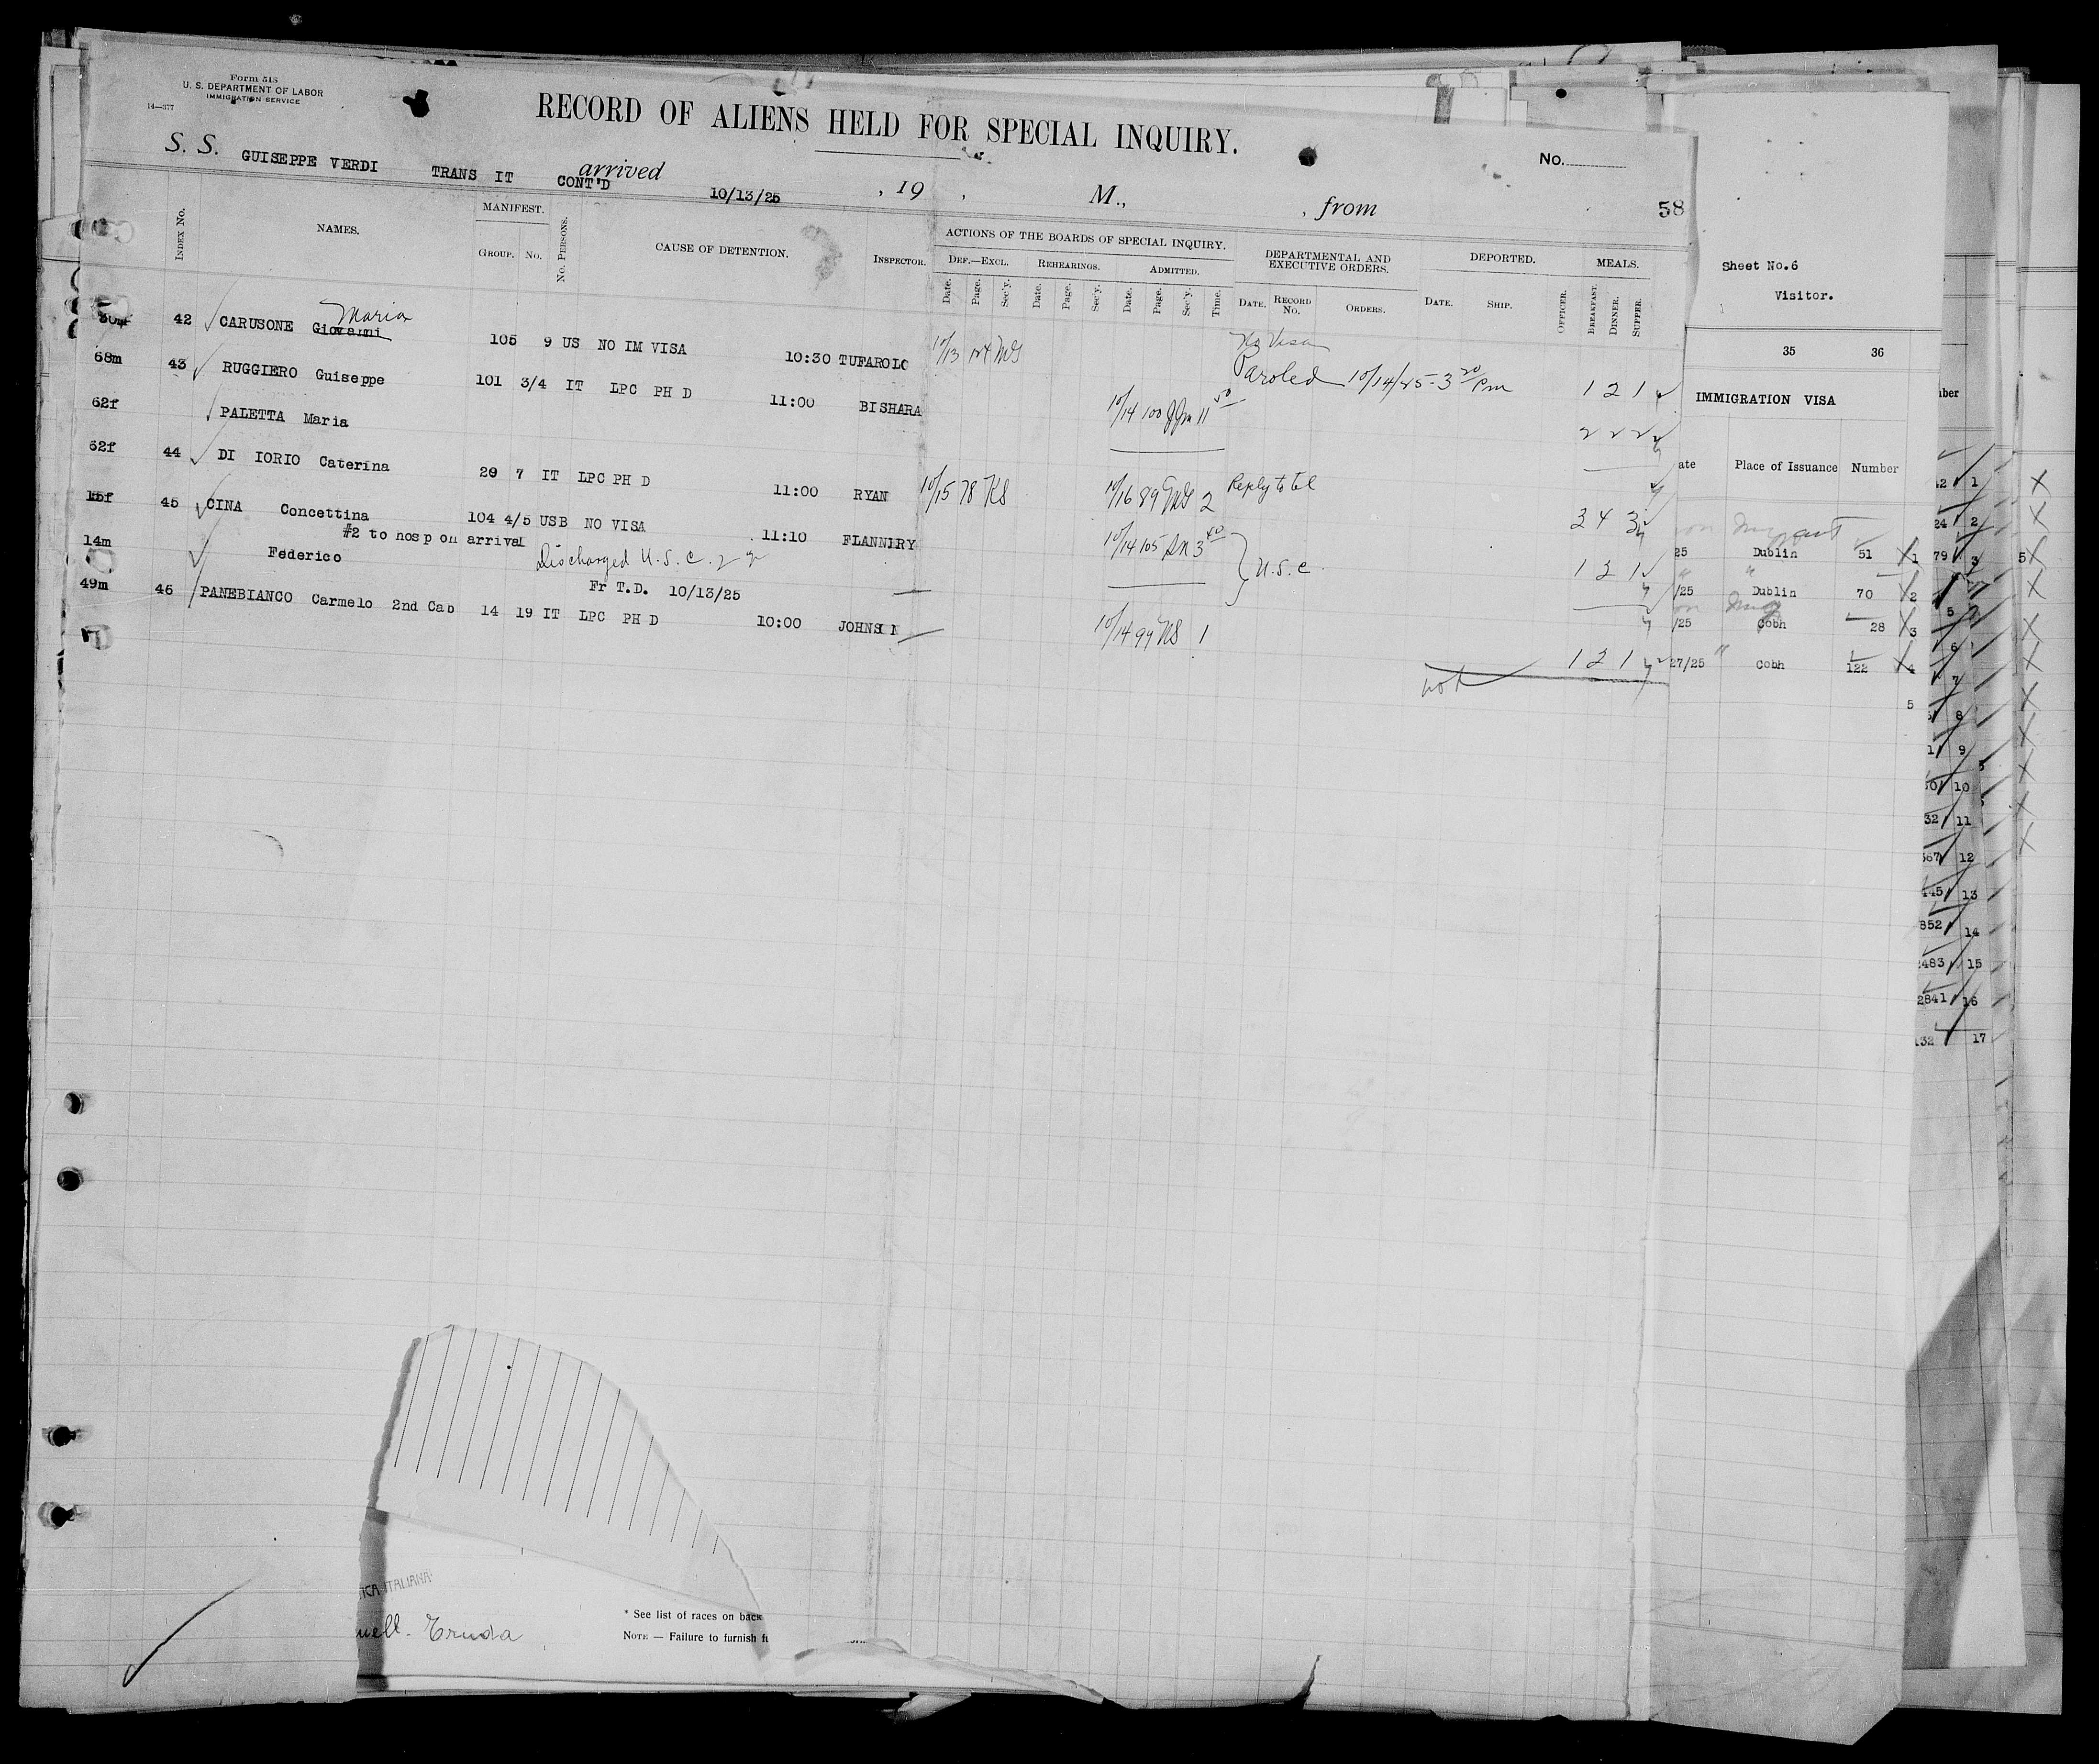 Form 518
U. S. DEPARTMENT OF LABOR
IMMIGRATION SERVICE
14—377
RECORD OF ALIENS HELD FOR SPECIAL INQUIRY.
No.
S. S. GUISEPPE VERDI TRANS IT CONT'D arrived 10/13/25 , 19 , M., , from 58
INDEX No. NAMES. MANIFEST. GROUP. No. No. PERSONS. CAUSE OF DETENTION. INSPECTOR. ACTIONS OF THE BOARDS OF SPECIAL INQUIRY. DEPARTMENTAL AND EXECUTIVE ORDERS. DEPORTED. MEALS.
DEF.—EXCL. REHEARINGS. ADMITTED.
Date. Page. Sec'y. Date. Page. Sec'y. Date. Page. Sec'y. Time. DATE. RECORD No. ORDERS. DATE. SHIP. OFFICER. BREAKFAST. DINNER. SUPPER.
Maria
42 CARUSONE Giovanni 105 9 US NO IM VISA 10:30 TUFAROLO 10/13 No Visa
Paroled 10/14/25-3 20 Pm 1 2 1
68m 43 RUGGIERO Guiseppe 101 3/4 IT LPC PH D 11:00 BISHARA 10/14 100 11 50 2 2 2
62f PALETTA Maria
62f 44 DI IORIO Caterina 29 7 IT LPC PH D 11:00 RYAN 10/15 78 KS 10/16 89 2 Reply to tel 3 4 3
15f 45 CINA Concettina 104 4/5 USB NO VISA 11:10 FLANNERY 10/14 105 3 40 U.S.C. 1 2 1
#2 to hosp on arrival
14m Federico Discharged U.S.C.
Fr T.D. 10/13/25
49m 46 PANEBIANCO Carmelo 2nd Cab 14 19 IT LPC PH D 10:00 JOHNSON 10/14 99 KS 1 1 2 1
Sheet No.6
Visitor.
35 36
IMMIGRATION VISA
ate Place of Issuance Number
25 Dublin 51 1
/25 Dublin 70 2
/25 Cobh 28 3
27/25 " Cobh 122 4
5
ber
1
24 2
79 3
5
6
7
8
9
10
32 11
567 12
445 13
852 14
2483 15
2841 16
132 17
ICA ITALIANA
well. Eruda
* See list of races on back
NOTE — Failure to furnish